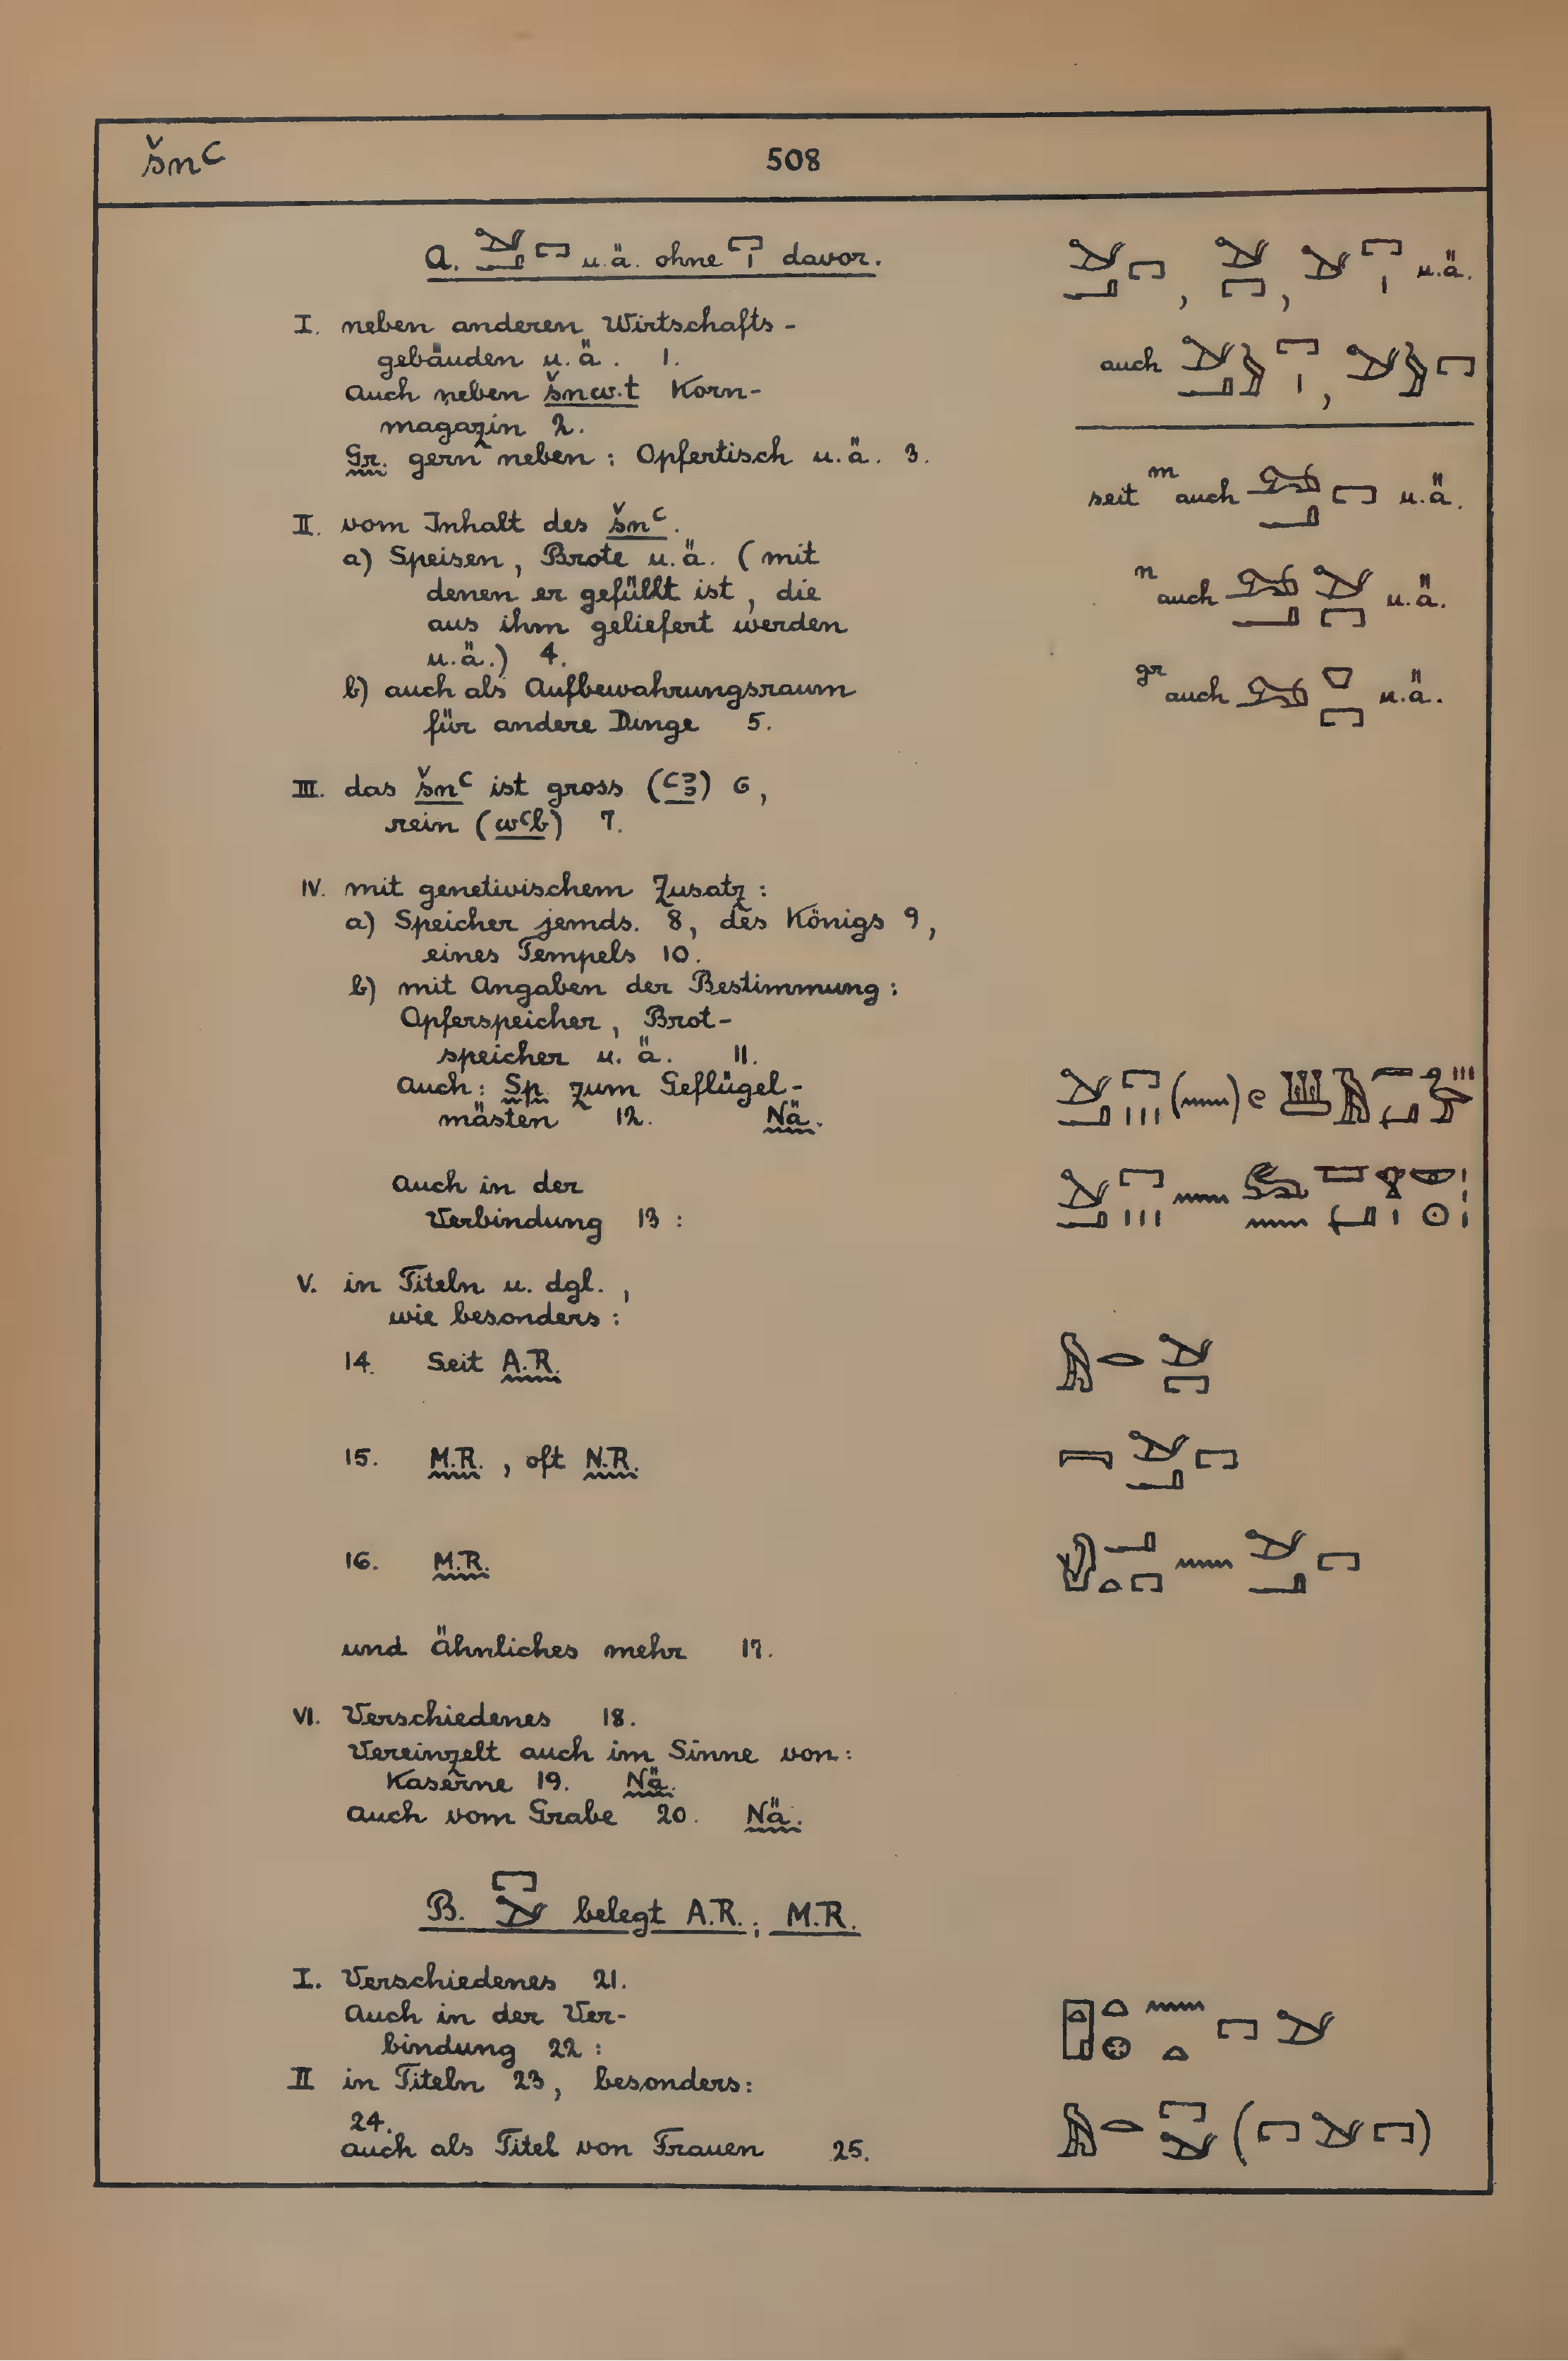 šnꜥ 508
A. u.ä. ohne davor.
u.ä.
I. neben anderen Wirtschafts-
gebäuden u.ä. 1.
auch
Auch neben šnw.t Korn-
magazin 2.
Gr. gern neben: Opfertisch u.ä. 3.
seit m auch u.ä.
II. vom Inhalt des šnꜥ.
a) Speisen, Brote u.ä. (mit
denen er gefüllt ist, die
n auch u.ä.
aus ihm geliefert werden
u.ä.) 4.
b) auch als Aufbewahrungsraum
gr auch u.ä.
für andere Dinge 5.
III. das šnꜥ ist gross (ꜥꜣ) 6,
rein (wꜥb) 7.
IV. mit genetivischem Zusatz:
a) Speicher jemds. 8, des Königs 9,
eines Tempels 10.
b) mit Angaben der Bestimmung:
Opferspeicher, Brot-
speicher u.ä. 11.
Auch: Sp. zum Geflügel-
mästen 12. Nä.
Auch in der
Verbindung 13:
V. in Titeln u. dgl.,
wie besonders:
14. Seit A.R.
15. M.R., oft N.R.
16. M.R.
und ähnliches mehr 17.
VI. Verschiedenes 18.
Vereinzelt auch im Sinne von:
Kaserne 19. Nä.
Auch vom Grabe 20. Nä.
B. belegt A.R.; M.R.
I. Verschiedenes 21.
Auch in der Ver-
bindung 22:
II in Titeln 23, besonders:
24.
auch als Titel von Frauen 25.